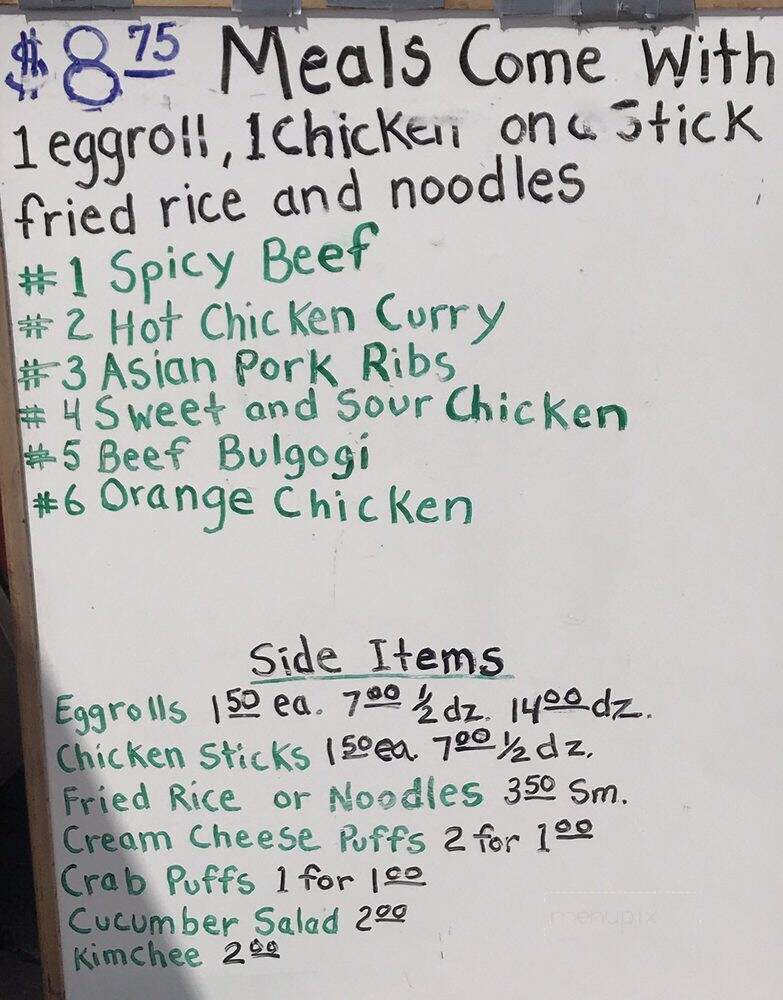 $8 75 Meals Come With
1 eggroll, 1 Chicken on a Stick
fried rice and noodles
#1 Spicy Beef
#2 Hot Chicken Curry
#3 Asian Pork Ribs
#4 Sweet and Sour Chicken
#5 Beef Bulgogi
#6 Orange Chicken
Side Items
Eggrolls 1 50 ea. 7 00 1/2 dz. 14 00 dz.
Chicken Sticks 1 50 ea. 7 00 1/2 dz.
Fried Rice or Noodles 3 50 Sm.
Cream Cheese Puffs 2 for 1 00
Crab Puffs 1 for 1 00
Cucumber Salad 2 00
Kimchee 2 00
menupix